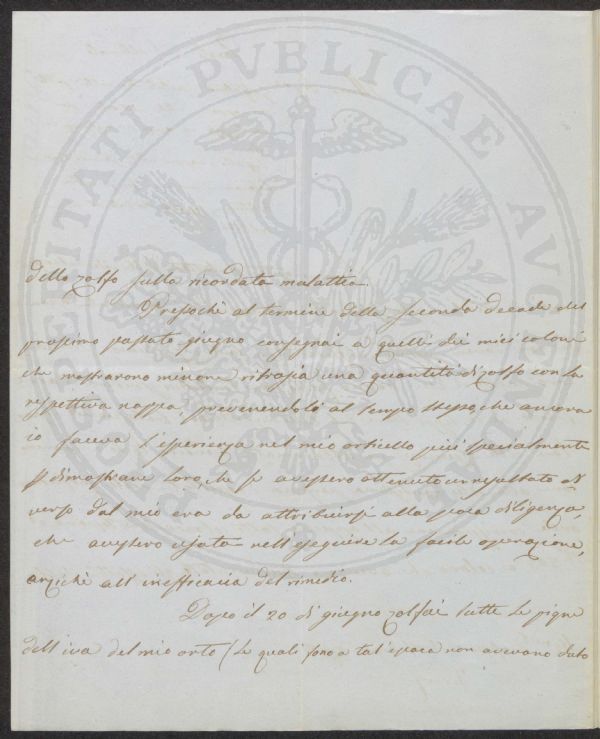 PROSPERITATI PVBLICAE AVGENDAE
dello zolfo sulla ricordata malattia.
Pressochè al termine della seconda decade del
prossimo passato giugno consegnai a quelli dei miei coloni
che mostrarono minore ritrosia una quantità di zolfo con la
respettiva nappa, prevenendoli al tempo stesso, che ancora
io faceva l'esperienza nel mio orticello più specialmente
p dimostrare loro, che se avessero ottenuto un resultato di
verso dal mio era da attribuirsi alla poca diligenza,
che avessero usata nell'eseguire la facile operazione,
anzichè all'inefficacia del rimedio.
Dopo il 20 di giugno zolfai tutte le pigne
dell'uva del mio orto (le quali fino a tal'epoca non avevano dato